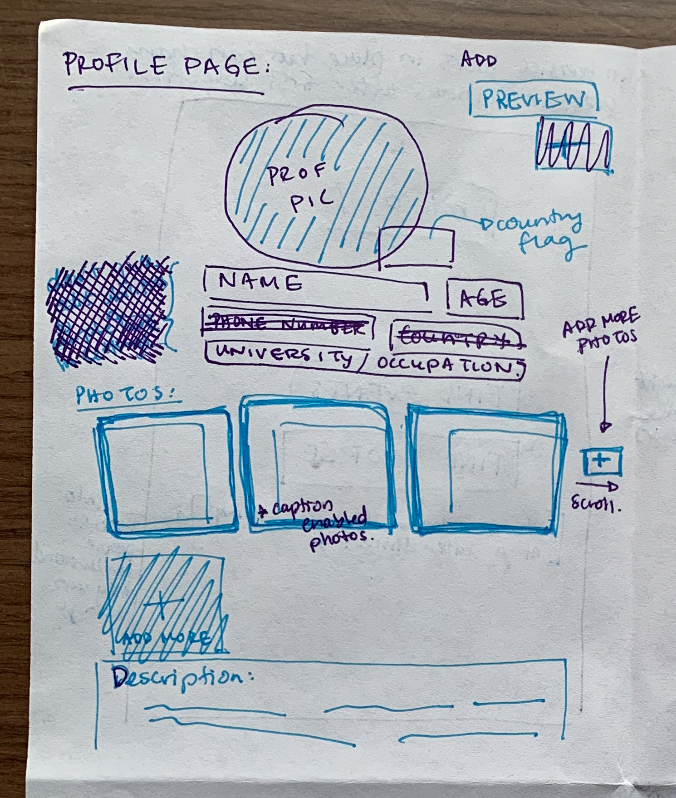 PROFILE PAGE:
ADD
PREVIEW
PROF
PIC
country
flag
NAME
AGE
PHONE NUMBER
COUNTRY
UNIVERSITY / OCCUPATION.
ADD MORE
PHOTOS
PHOTOS:
+
+ caption
enabled
photos.
Scroll.
+
ADD MORE
Description: